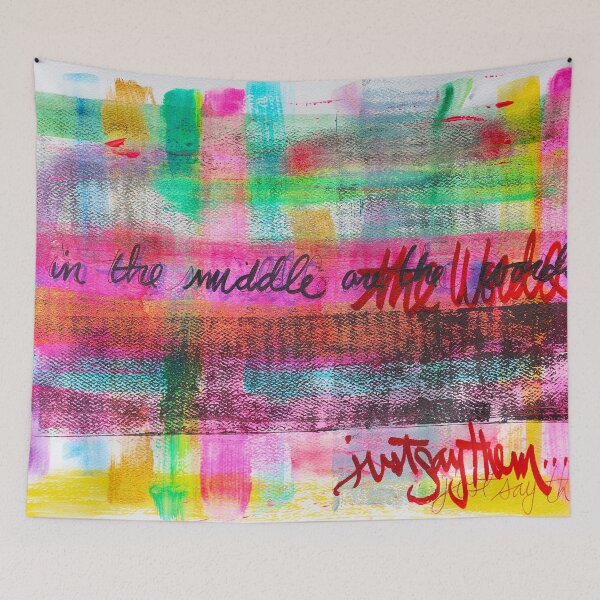 in the middle are the words
the Words
just say them...
just say th